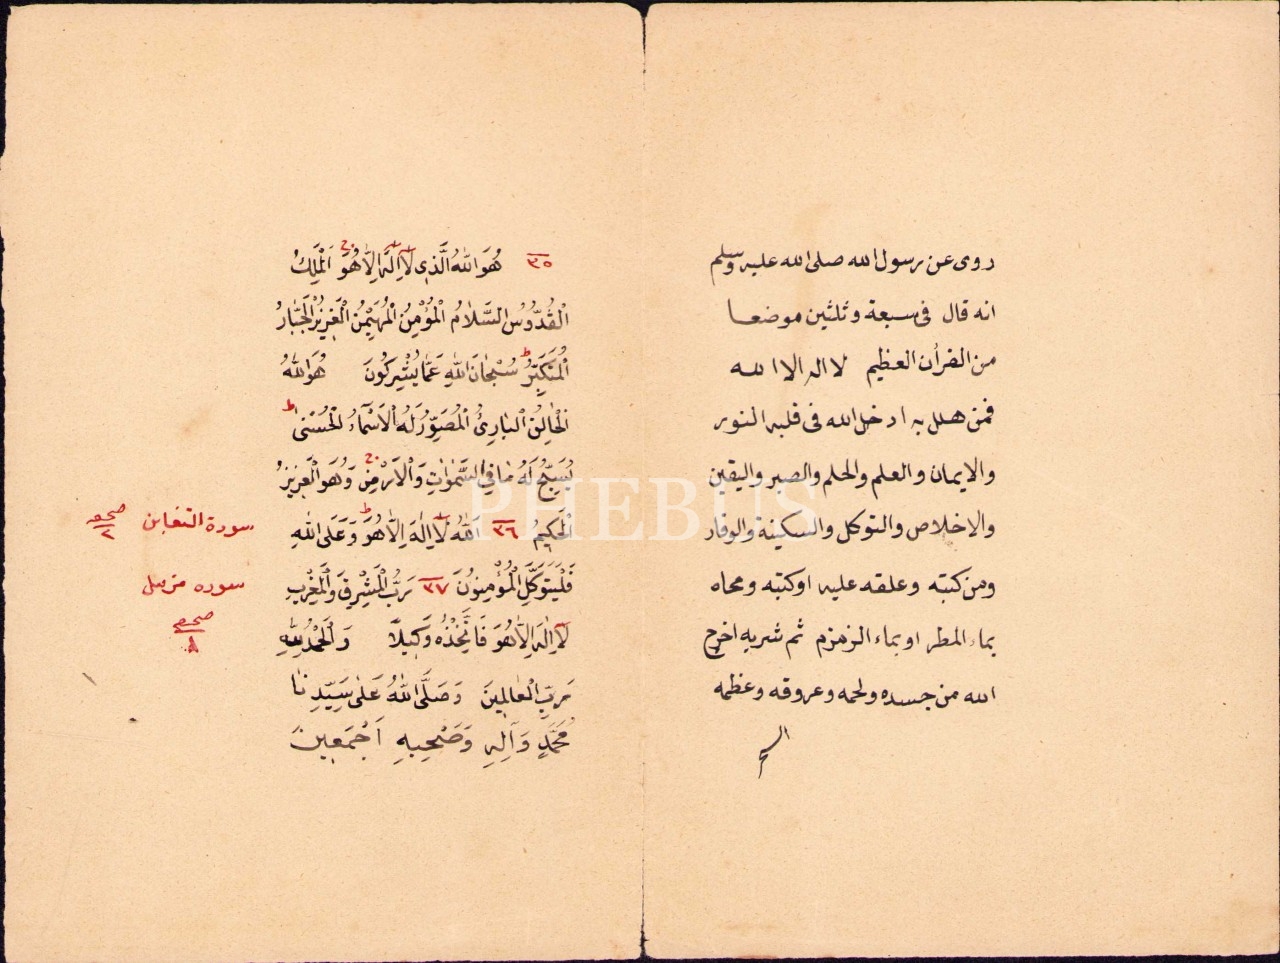 روى عن رسول الله صلى الله عليه وسلم
انه قال فى سبعة و ثلثين موضعا
من القرأن العظيم لا اله الا الله
فمن هلل به ادخل الله فى قلبه النور
والايمان والعلم والحلم والصبر واليقين
والاخلاص والتوكل والسكينة والوقار
ومن كتبه وعلقه عليه او كتبه ومحاه
بماء المطر او بماء الزمزم ثم شربه اخرج
الله من جسده ولحمه وعروقه وعظمه
٣٥ هُوَ اللهُ الَّذِى لَا اِلَهَ اِلَّا هُوَ اَلْمَلِكُ
الْقُدُّوسُ السَّلَامُ الْمُؤْمِنُ الْمُهَيْمِنُ الْعَزِيزُ الْجَبَّارُ
الْمُتَكَبِّرُ سُبْحَانَ اللهِ عَمَّا يُشْرِكُونَ هُوَ اللهُ
الْخَالِقُ الْبَارِئُ الْمُصَوِّرُ لَهُ الْاَسْمَاءُ الْحُسْنٰى
يُسَبِّحُ لَهُ مَا فِي السَّمٰوَاتِ وَالْاَرْضِ وَهُوَ الْعَزِيزُ
الْحَكِيمُ ٣٦ اَللهُ لَا اِلٰهَ اِلَّا هُوَ وَعَلَى اللهِ
فَلْيَتَوَكَّلِ الْمُؤْمِنُونَ ٣٧ رَبُّ الْمَشْرِقِ وَالْمَغْرِبِ
لَا اِلٰهَ اِلَّا هُوَ فَاتَّخِذْهُ وَكِيلًا وَالْحَمْدُ لِلّٰهِ
رَبِّ الْعَالَمِينَ وَصَلَّى اللهُ عَلٰى سَيِّدِنَا
مُحَمَّدٍ وَآلِهِ وَصَحْبِهِ اَجْمَعِينَ
سورة التغابن
سوره مزمل
٨
PHEBUS